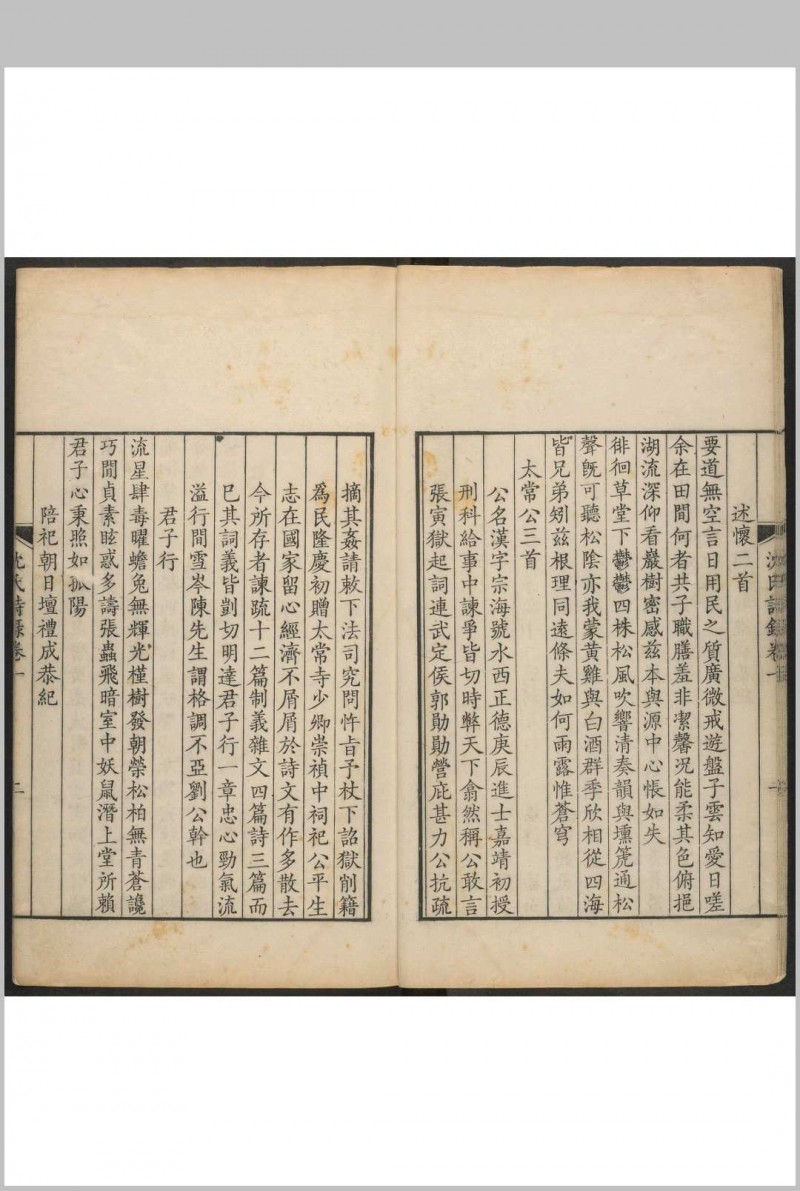 述懷二首
要道無空言日用民之質廣微戒遊盤子雲知愛日嗟
余在田間何者共子職膳羞非潔馨況能柔其色俯挹
湖流深仰看巖樹密感茲本與源中心悵如失
徘徊草堂下鬱鬱四株松風吹響清奏韻與壎箎通松
聲旣可聽松陰亦我蒙黄雞與白酒群季欣相從四海
皆兄弟矧茲根理同遠條夫如何雨露惟蒼穹
太常公三首
公名漢字宗海號水西正德庚辰進士嘉靖初授
刑科給事中諫爭皆切時弊天下翕然稱公敢言
張寅獄起詞連武定侯郭勛勛營庇甚力公抗疏
沈氏詩錄卷一
一
摘其姦請敕下法司究問忤旨予杖下詔獄削籍
爲民隆慶初贈太常寺少卿崇禎中祠祀公平生
志在國家留心經濟不屑屑於詩文有作多散去
今所存者諫疏十二篇制義雜文四篇詩三篇而
巳其詞義皆剴切明達君子行一章忠心勁氣流
溢行間雪岑陳先生謂格調不亞劉公幹也
君子行
流星肆毒曜蟾兔無輝光槿樹發朝榮松柏無青蒼讒
巧閒貞素眩惑多譸張蟲飛暗室中妖鼠潛上堂所賴
君子心秉照如孤陽
陪祀朝日壇禮成恭紀
沈氏詩錄卷一
二